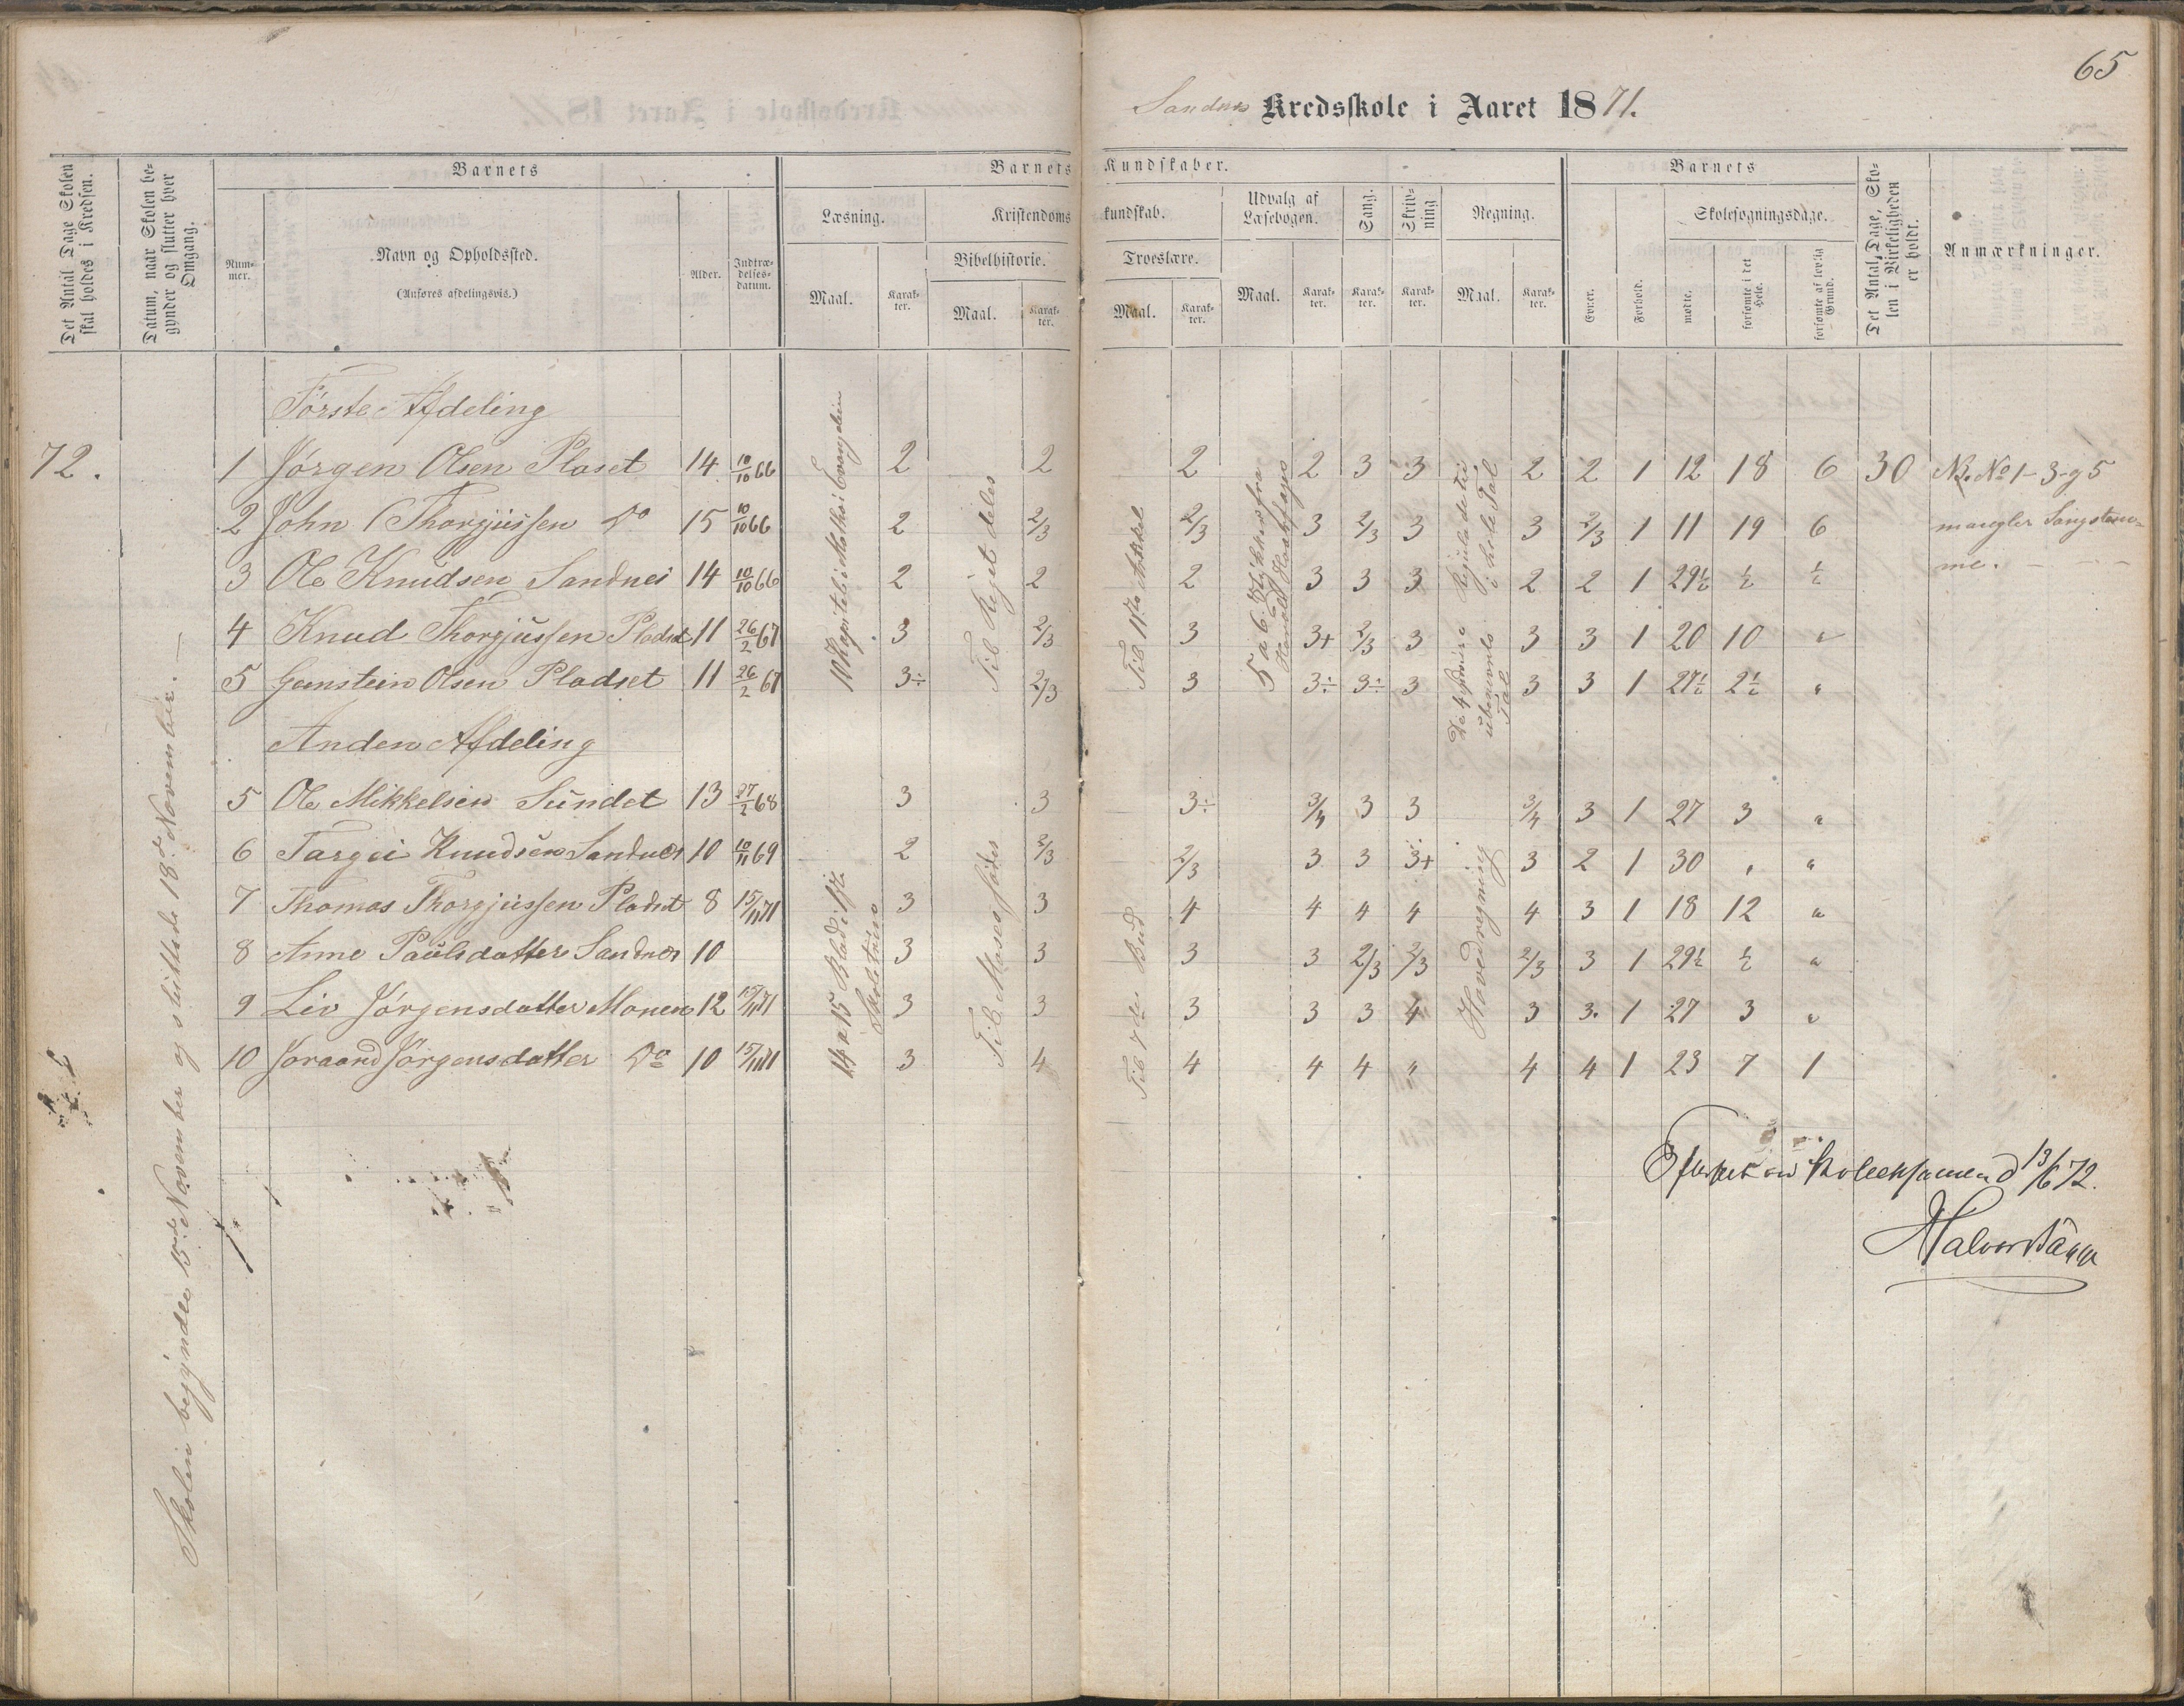 65
Sandnes Kredsskole i Aaret 1871.
Det Antal Dage Skolen skal holdes i Kredsen.
Datum, naar Skolen begynder og slutter hver Omgang.
Barnets
Barnets Kundskaber.
Barnets
Det Antal Dage, Skolen i Virkeligheden er holdt.
Anmærkninger.
Nummer.
Navn og Opholdssted.
(Anføres afdelingsvis.)
Alder.
Indtrædelsesdatum.
Læsning.
Kristendomskundskab.
Udvalg af Læsebogen.
Sang.
Skrivning
Regning.
Evner.
Forhold.
Skolesøgningsdage.
Bibelhistorie.
Troeslære.
mødte.
forsømte i det Hele.
forsømte af lovlig Grund.
Maal.
Karakter.
Maal.
Karakter.
Maal.
Karakter.
Maal.
Karakter.
Karakter.
Karakter.
Maal.
Karakter.
Første Afdeling
72. 1 Jørgen Olsen Plaset 14 10/10 66 2 2 2 2 3 3 2 2 1 12 18 6 30 NB. No 1-3-g 5
2 John Thorgjussen Do 15 10/10 66 2 2/3 2/3 3 2/3 3 3 2/3 1 11 19 6 mangler Sangstem-
3 Ole Knudsen Sandnes 14 10/10 66 2 2 2 3 3 3 2 2 1 29½ ½ ½ me.
4 Knud Thorgjussen Pladset 11 26/2 67 3 2/3 3 3+ 2/3 3 3 3 1 20 10 "
5 Gunstein Olsen Pladset 11 26/2 67 3÷ 2/3 3 3÷ 3÷ 3 3 3 1 27½ 2½ "
Anden Afdeling
5 Ole Mikkelsen Sundet 13 27/2 68 3 3 3÷ 3/4 3 3 3/4 3 1 27 3 "
6 Targei Knudsen Sandnes 10 10/11 69 2 2/3 2/3 3 3 3+ 3 2 1 30 " "
7 Thomas Thorgjussen Pladset 8 15/11 71 3 3 4 4 4 4 4 3 1 18 12 "
8 Anne Paulsdatter Sandnes 10 3 3 3 3 2/3 2/3 2/3 3 1 29½ ½ "
9 Liv Jørgensdatter Monen 12 15/11 71 3 3 3 3 3 4 3 3. 1 27 3 "
10 Joraand Jørgensdatter Do 10 15/11 71 3 4 4 4 4 " 4 4 1 23 7 1
Skolen begyndte 15de November og sluttede 18de November. —
10 Kapitel i Evangelien
Til Riget deles
Til 11te Artikel
5 a 6 Stykker fra Harald Haarfager
i hele Tal
ubenævnte Tal
14 a 15 Blad i
Til Moses fødes
Til 7de Bud
Hovedregning
Efterseet ved Skoleeksamen d 13/6 72.
Halvor